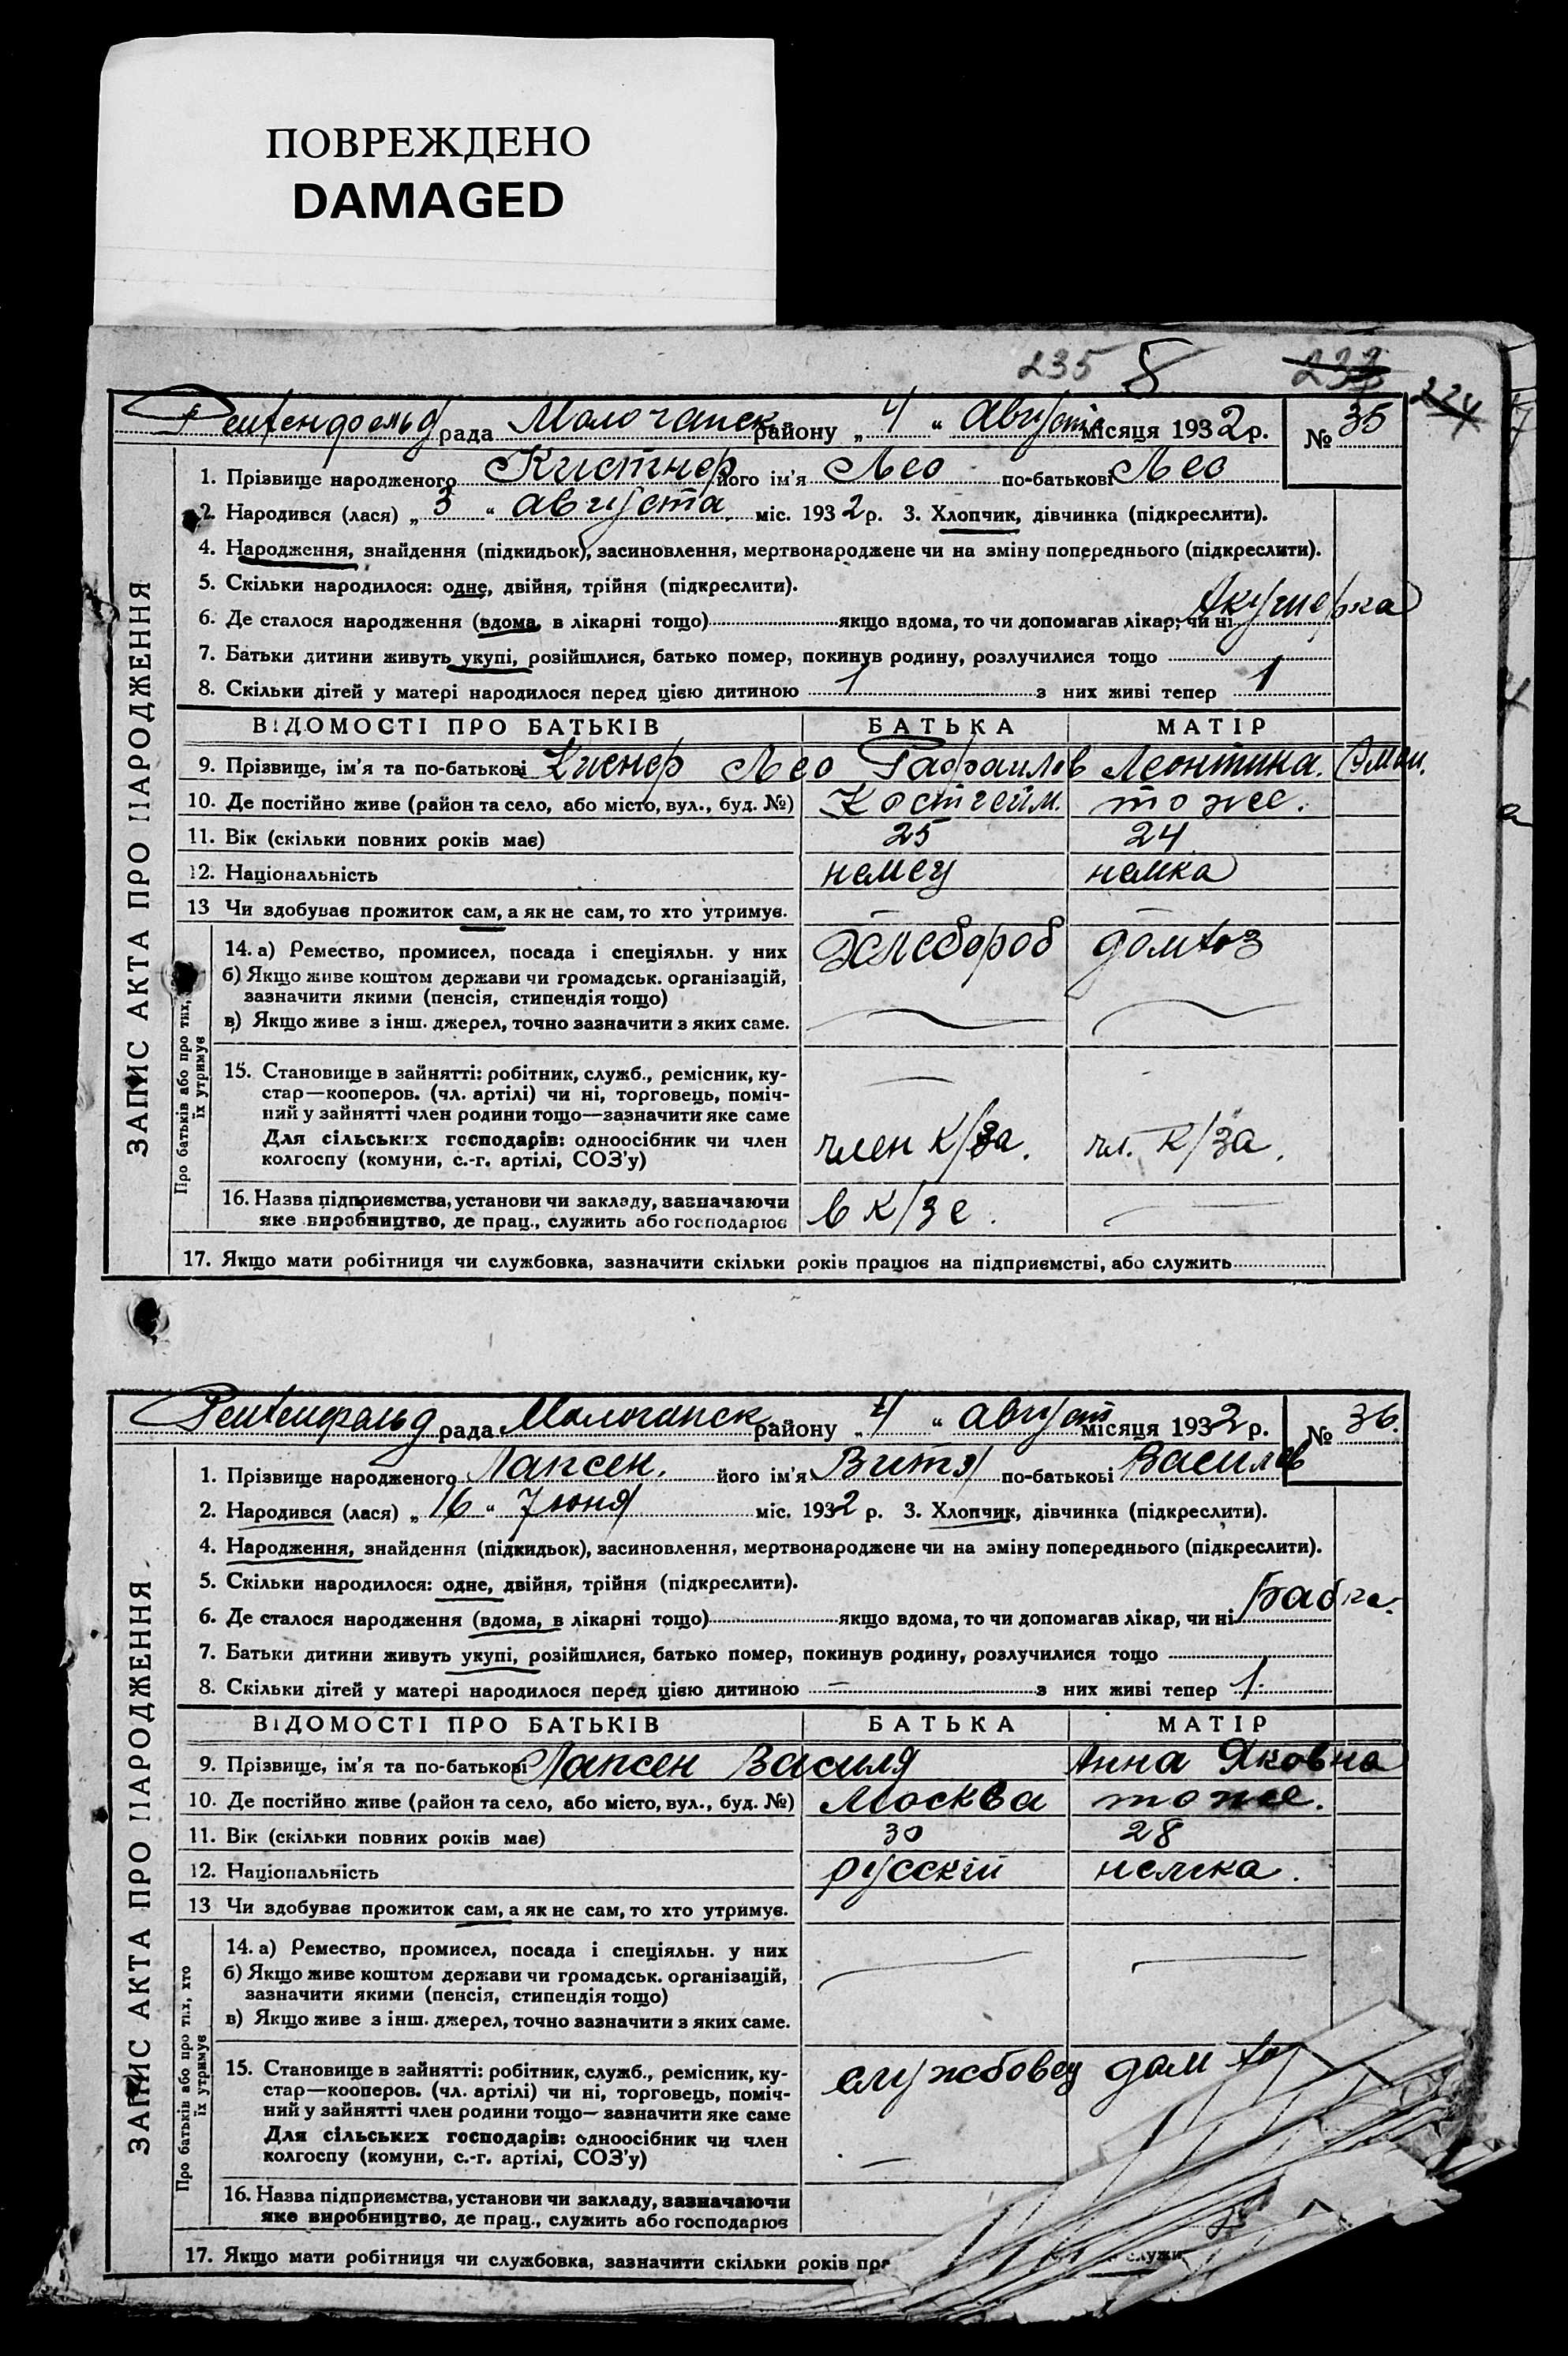 ПОВРЕЖДЕНО
DAMAGED
235 8
Рейхенфельд рада Молочанск району „ 4 “ августа місяця 1932 р. № 35
1. Прізвище народженого Кистнер його ім'я Лео по-батькові Лео
2. Народився (лася) „ 3 “ августа міс. 1932 р. 3. Хлопчик, дівчинка (підкреслити).
4. Народження, знайдення (підкидьок), засиновлення, мертвонароджене чи на зміну попереднього (підкреслити).
5. Скільки народилося: одне, двійня, трійня (підкреслити).
6. Де сталося народження (вдома, в лікарні тощо) якщо вдома, то чи допомагав лікар, чи ні Акушерка
7. Батьки дитини живуть укупі, розійшлися, батько помер, покинув родину, розлучилися тощо
8. Скільки дітей у матері народилося перед цією дитиною 1 з них живі тепер 1
ВІДОМОСТІ ПРО БАТЬКІВ БАТЬКА МАТІР
9. Прізвище, ім'я та по-батькові Лео Рафаилов Леонтина.
10. Де постійно живе (район та село, або місто, вул., буд. №) Костгейм. тоже.
11. Вік (скільки повних років має) 25 24
12. Національність немец немка
13 Чи здобував прожиток сам, а як не сам, то хто утримує. —
14. а) Ремество, промисел, посада і спеціяльн. у них хлебороб домхоз
б) Якщо живе коштом держави чи громадськ. організацій,
зазначити якими (пенсія, стипендія тощо)
в) Якщо живе з інш. джерел, точно зазначити з яких саме.
15. Становище в зайнятті: робітник, служб., ремісник, ку-
стар—кооперов. (чл. артілі) чи ні, торговець, поміч-
ний у зайнятті член родини тощо—зазначити яке саме
Для сільських господарів: одноосібник чи член
колгоспу (комуни, с.-г. артілі, СОЗ'у) член к/за. чл. к/за.
16. Назва підприємства, установи чи закладу, зазначаючи
яке виробництво, де прац., служить або господарює в к/зе.
17. Якщо мати робітниця чи службовка, зазначити скільки років працює на підприємстві, або служить
ЗАПИС АКТА ПРО НАРОДЖЕННЯ
Про батьків або про тих,
їх утримує
Рейхенфельд рада Молочанск району „ 4 “ август місяця 1932 р. № 36.
1. Прізвище народженого Лапсен. його ім'я Витя по-батькові Василев
2. Народився (лася) „ 16 “ 7 июня міс. 1932 р. 3. Хлопчик, дівчинка (підкреслити).
4. Народження, знайдення (підкидьок), засиновлення, мертвонароджене чи на зміну попереднього (підкреслити).
5. Скільки народилося: одне, двійня, трійня (підкреслити).
6. Де сталося народження (вдома, в лікарні тощо) якщо вдома, то чи допомагав лікар, чи ні Бабка.
7. Батьки дитини живуть укупі, розійшлися, батько помер, покинув родину, розлучилися тощо
8. Скільки дітей у матері народилося перед цією дитиною — з них живі тепер 1.
ВІДОМОСТІ ПРО БАТЬКІВ БАТЬКА МАТІР
9. Прізвище, ім'я та по-батькові Лапсен Василя Анна Яковна
10. Де постійно живе (район та село, або місто, вул., буд. №) Москва тоже.
11. Вік (скільки повних років має) 30 28
12. Національність русскій немка.
13 Чи здобував прожиток сам, а як не сам, то хто утримує.
14. а) Ремество, промисел, посада і спеціяльн. у них
б) Якщо живе коштом держави чи громадськ. організацій,
зазначити якими (пенсія, стипендія тощо)
в) Якщо живе з інш. джерел, точно зазначити з яких саме.
15. Становище в зайнятті: робітник, служб., ремісник, ку- службовец дом
стар—кооперов. (чл. артілі) чи ні, торговець, поміч-
ний у зайнятті член родини тощо—зазначити яке саме
Для сільських господарів: одноосібник чи член
колгоспу (комуни, с.-г. артілі, СОЗ'у) —
16. Назва підприємства, установи чи закладу, зазначаючи
яке виробництво, де прац., служить або господарює
17. Якщо мати робітниця чи службовка, зазначити скільки років
ЗАПИС АКТА ПРО НАРОДЖЕННЯ
Про батьків або про тих, хто
їх утримує